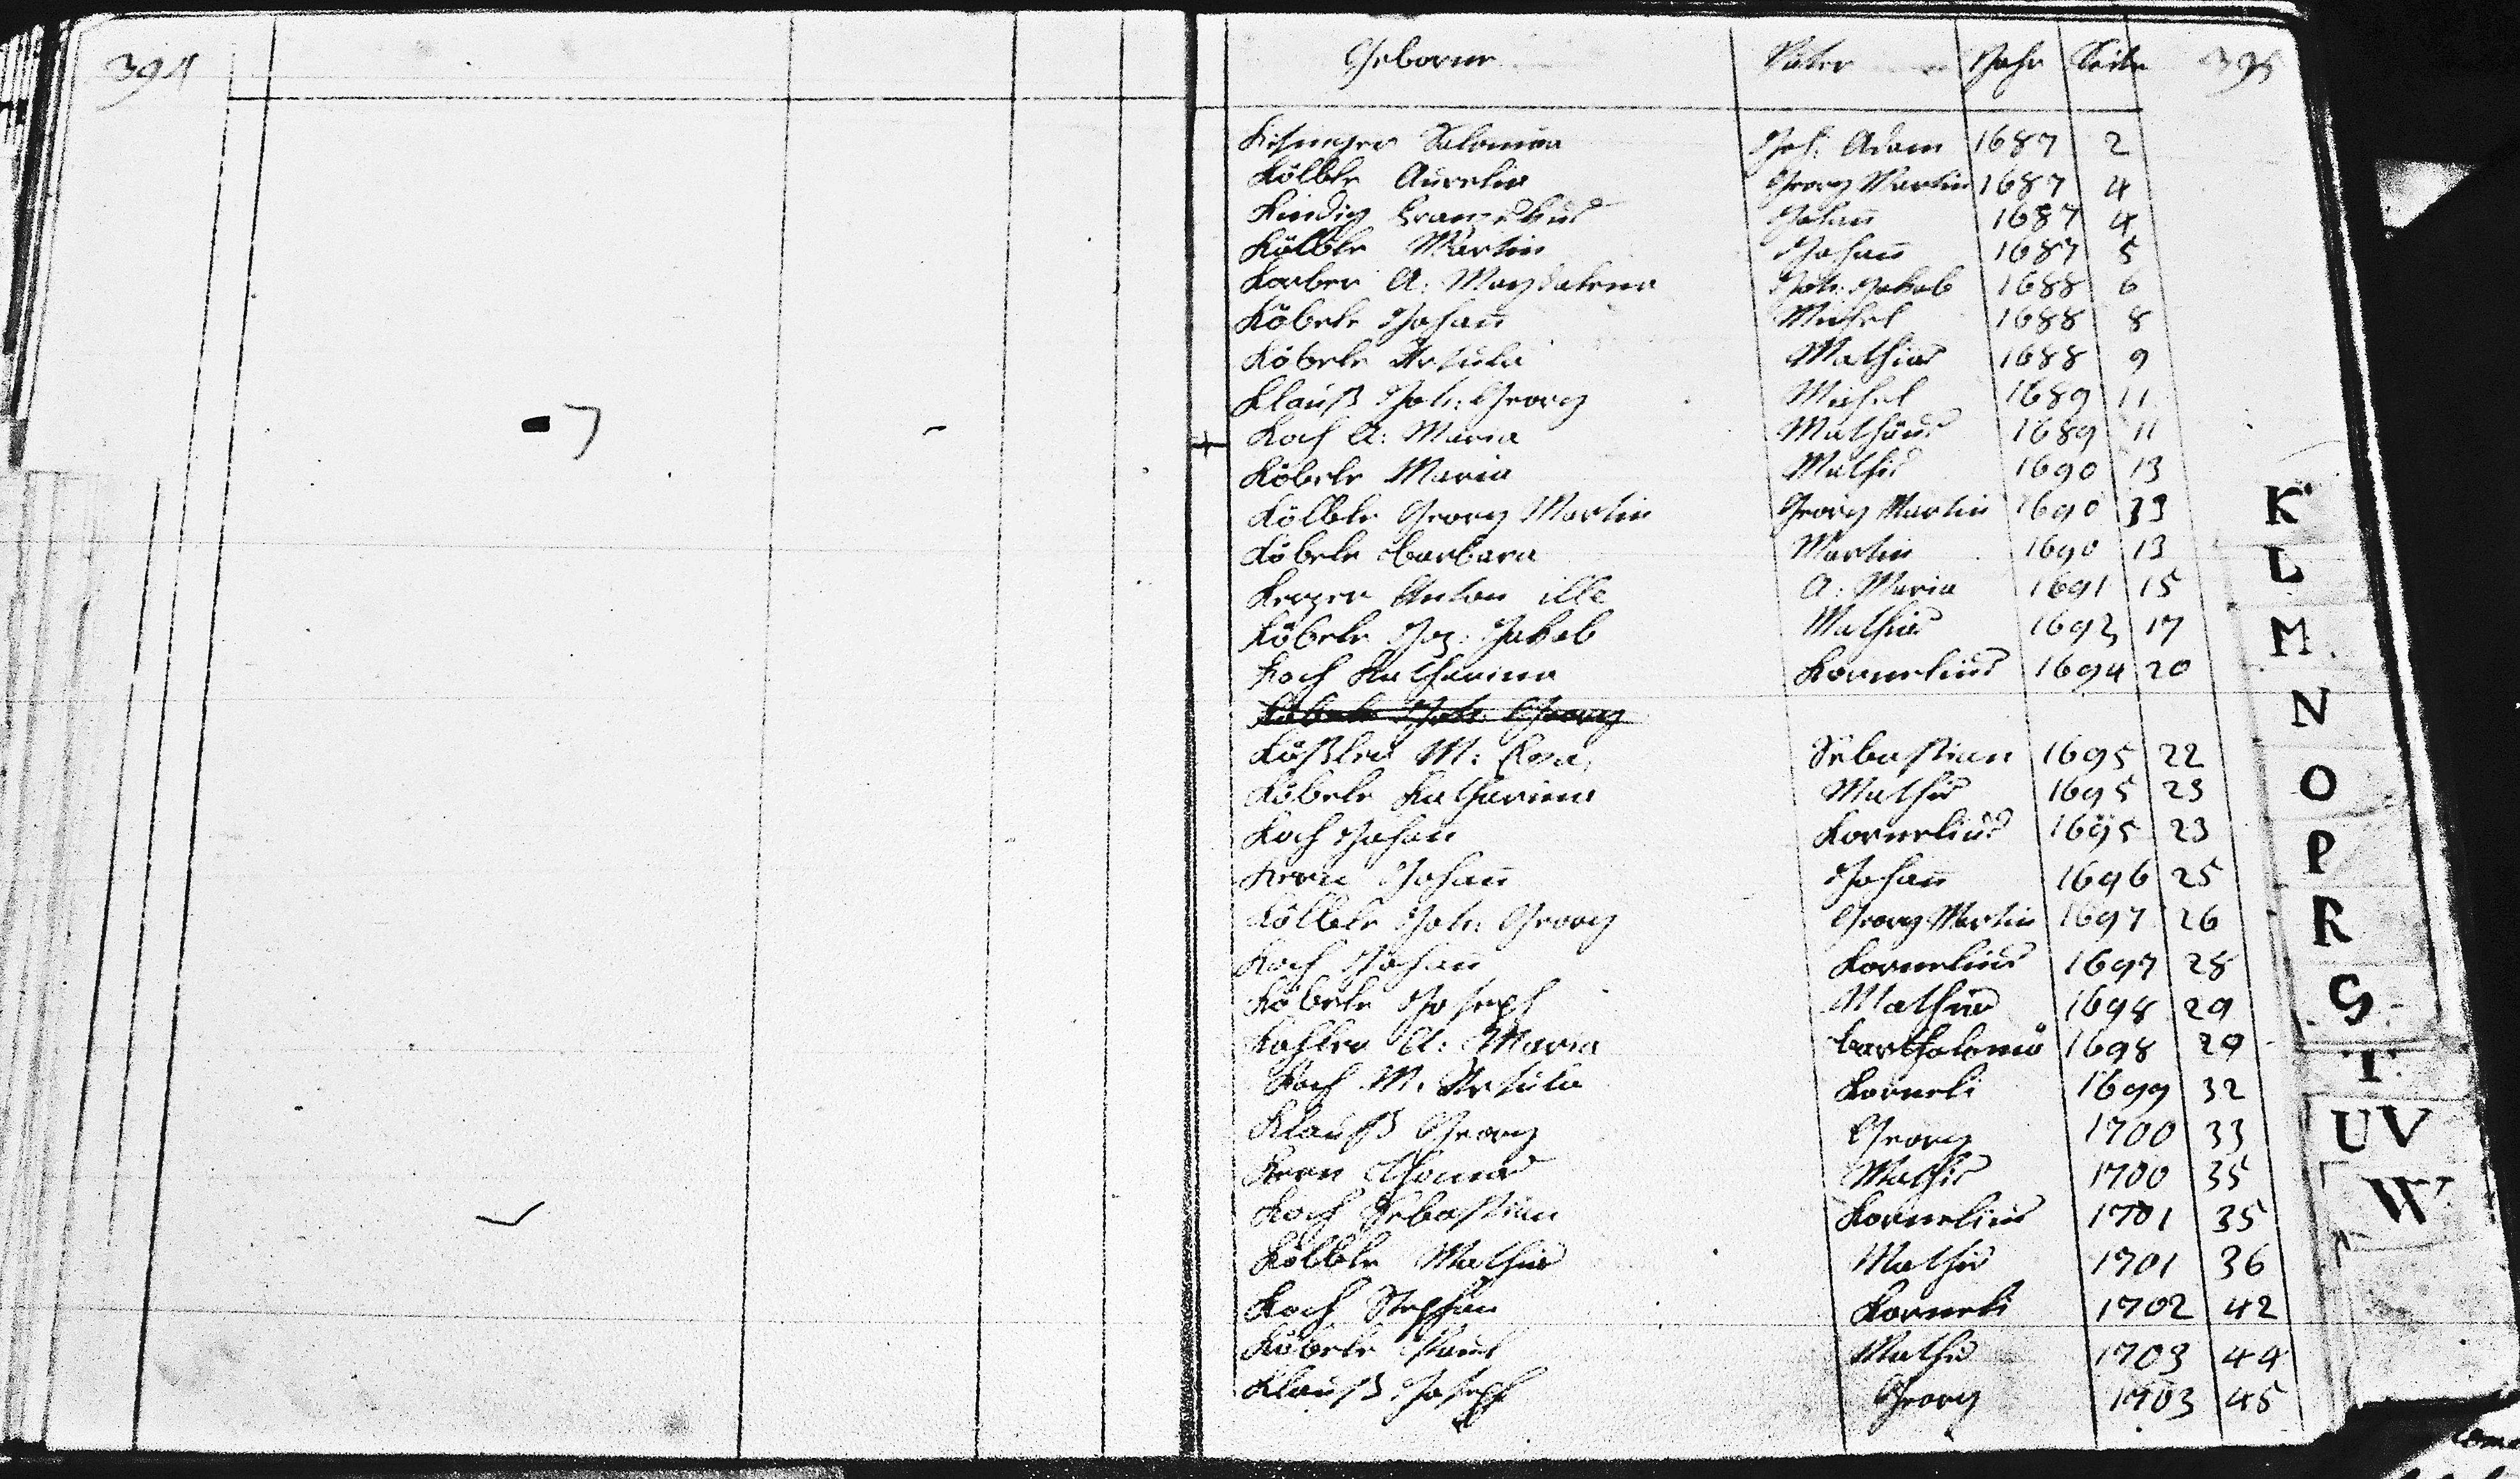 394
Geborne Vater Jahr Seite 395
Salomea Joh: Adam 1687 2
Kölble Aurelia Georg Martin 1687 4
Kindig Johan̄ 1687 4
Kölble Martin Johan̄ 1687 5
Korber A: Magdalena Joh: Jakob 1688 6
Köbele Johan̄ Michel 1688 8
Köbele Ursula Mathias 1688 9
Klauß Joh: Georg Michel 1689 11
Koch A: Maria Mathäus 1689 11
Köbele Maria Mathis 1690 13
Kölble Georg Martin Georg Martin 1690 13
Köbele Barbara Martin 1690 13
Anton ille A: Maria 1691 15
Köbele Jakob Mathias 1692 17
Koch Katharina Kornelius 1694 20
Köbele Joh: Georg
M: Sebastian 1695 22
Köbele Katharina Mathis 1695 23
Koch Johan Kornelius 1695 23
Kern Johan̄ Johan̄ 1696 25
Kölble Joh: Georg Georg Martin 1697 26
Koch Johan̄ Kornelius 1697 28
Köbele Joseph Mathias 1698 29
Kohler A: Maria Bartholomä 1698 29
Koch M: Ursula Korneli 1699 32
Klauß Georg Georg 1700 33
Kern Thomas Mathis 1700 35
Koch Sebastian Kornelius 1701 35
Kölble Mathias Mathis 1701 36
Koch Stephan Korneli 1702 42
Köbele Paul Mathis 1703 44
Klauß Joseph Georg 1703 45
K
L
M
N
O
P
R
S
T
UV
W